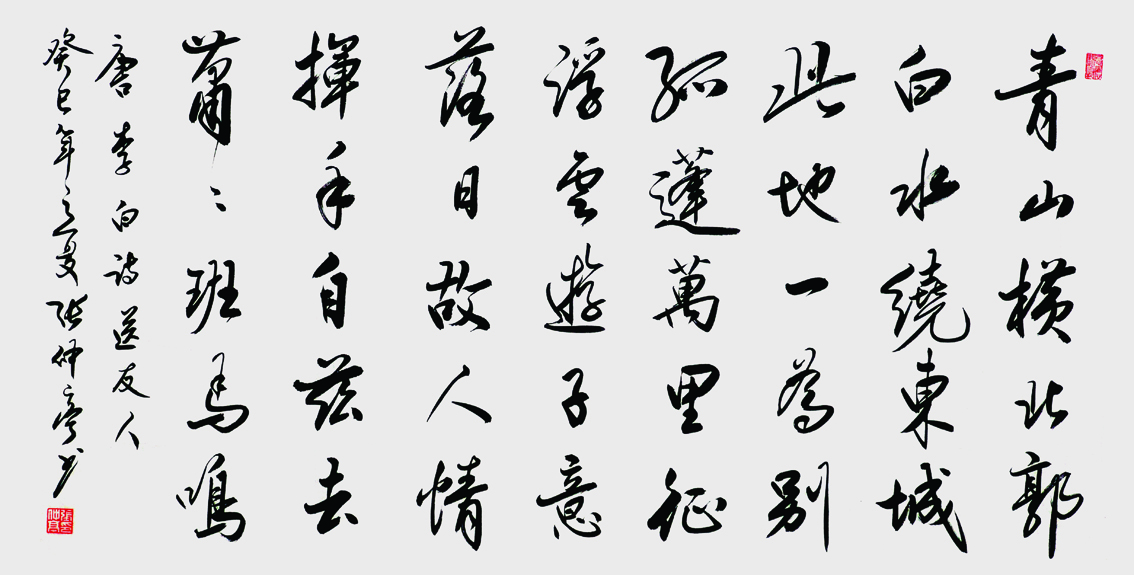 青山橫北郭
白水繞東城
此地一為別
孤蓬萬里征
浮雲遊子意
落日故人情
揮手自茲去
蕭〻班馬鳴
唐李白詩送友人
癸巳年之夏張仲亭書
張仲亭